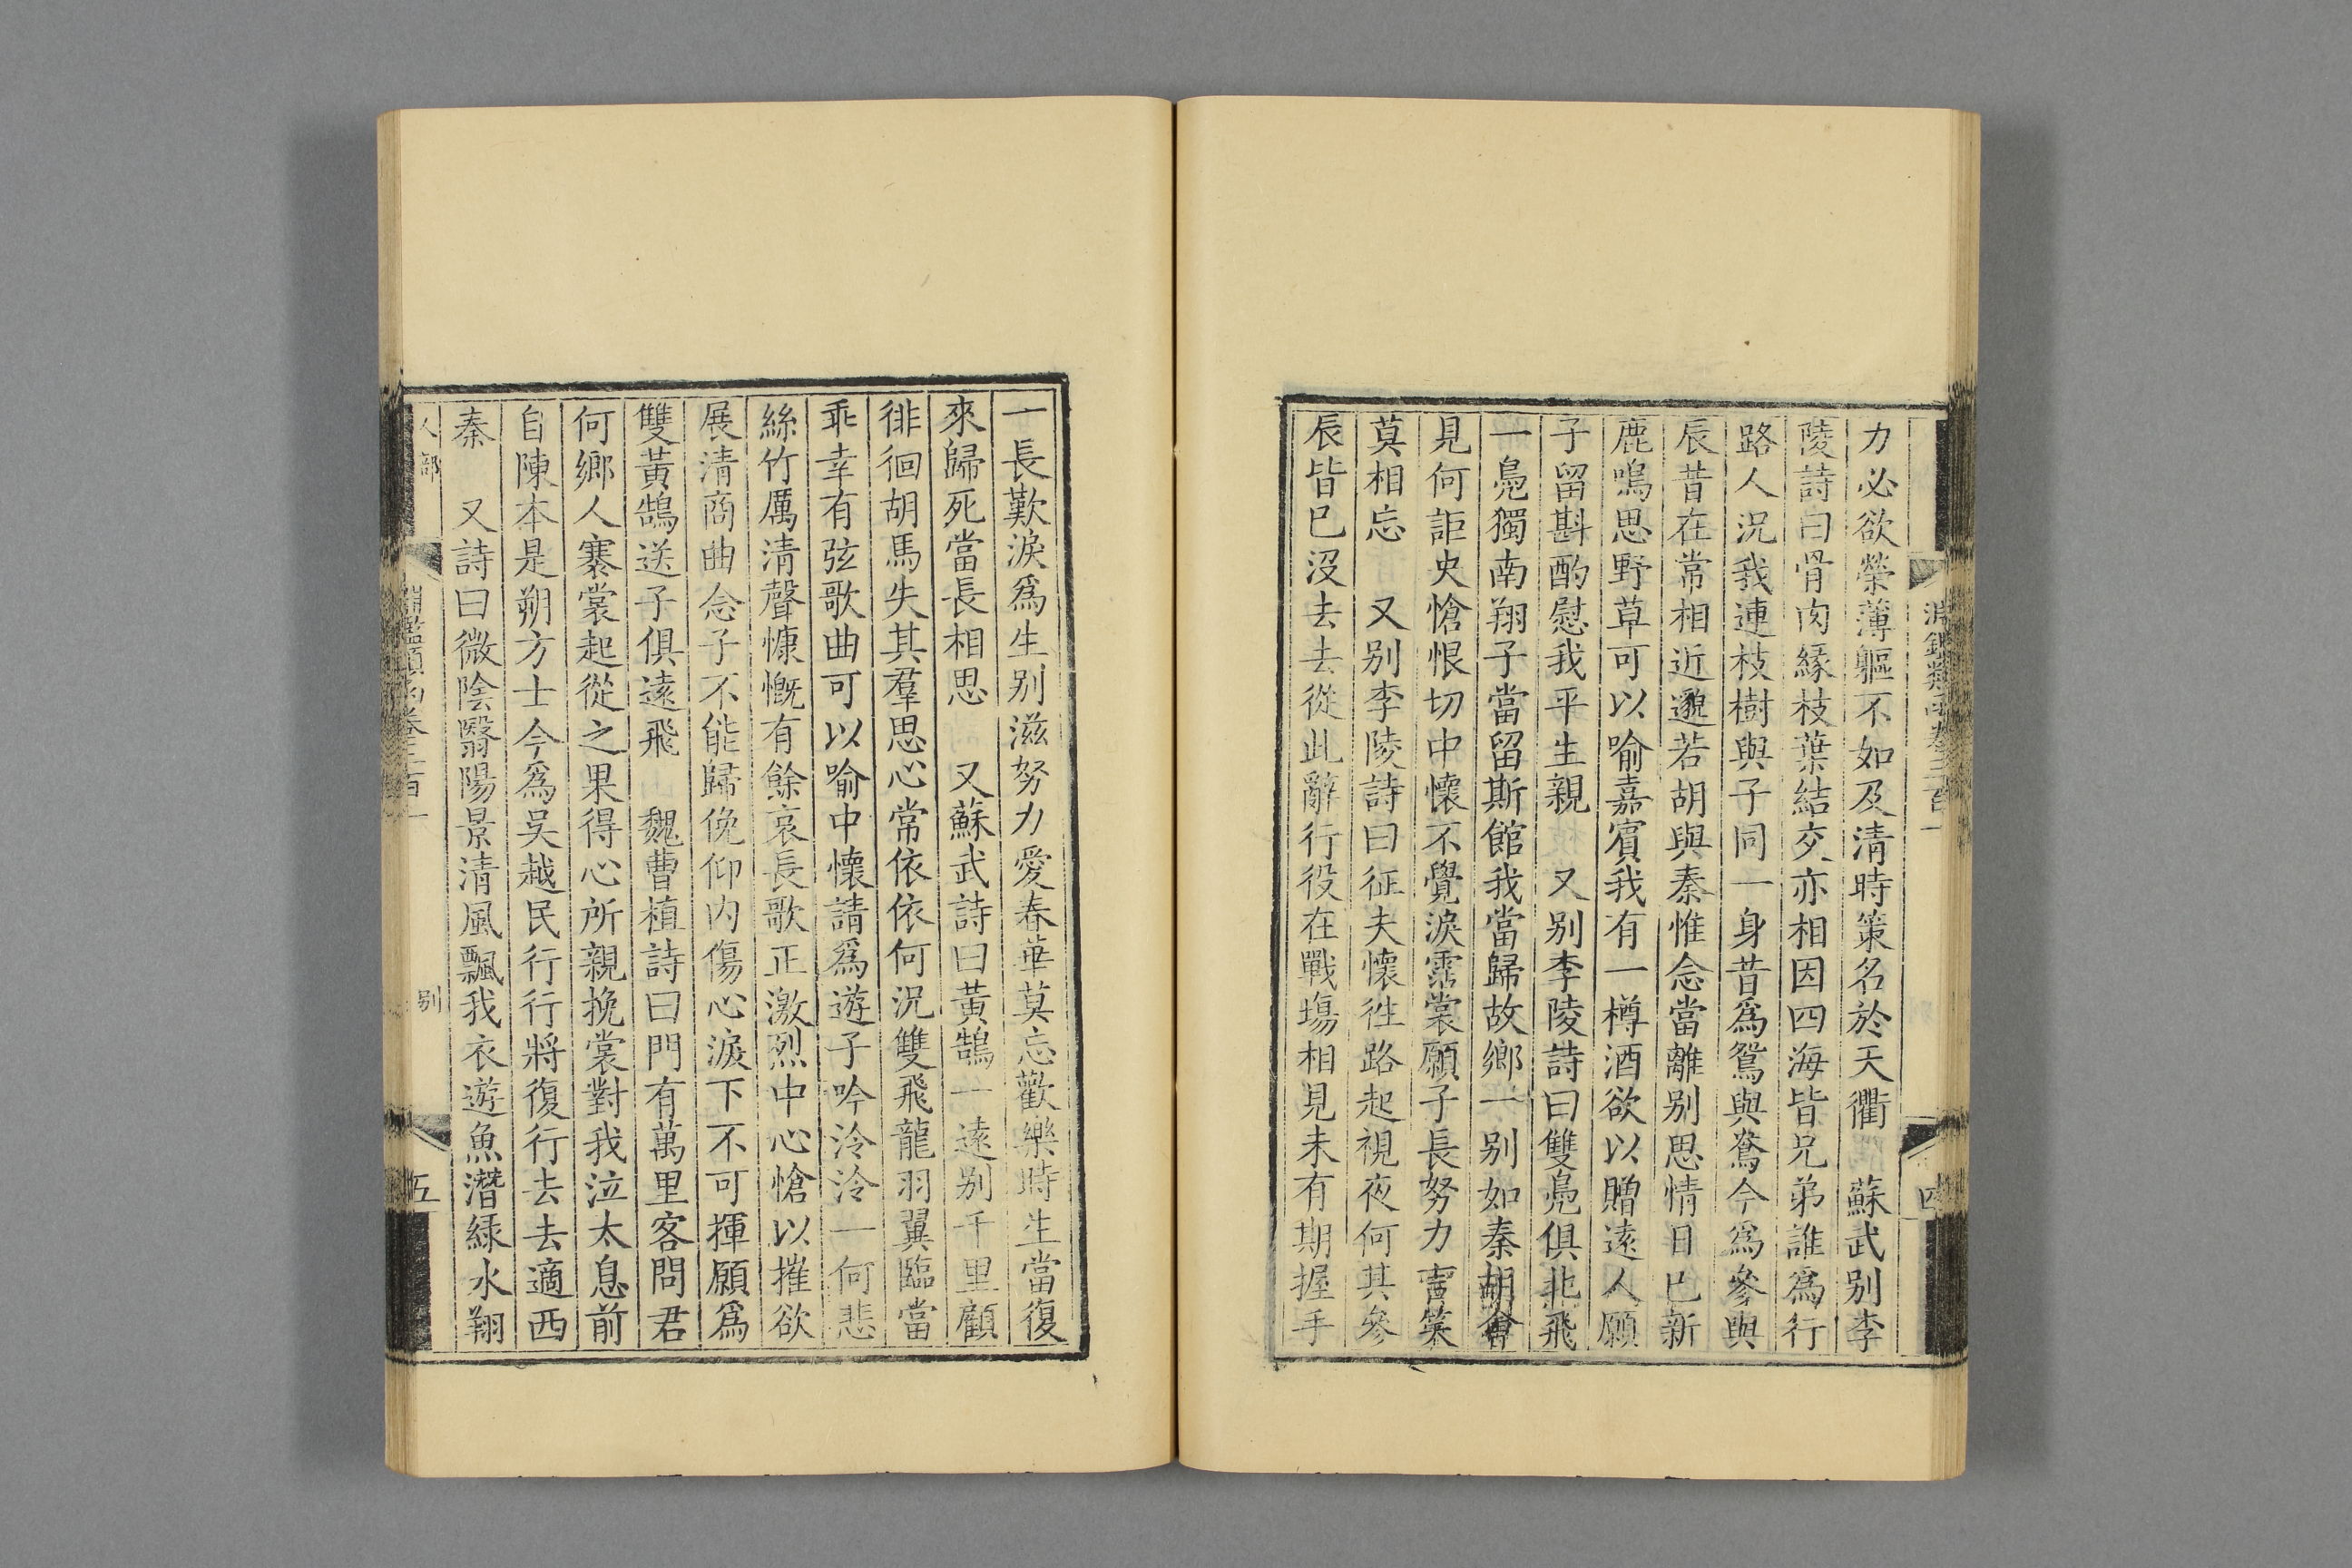 力必欲榮薄軀不如及清時策名於天衢　蘇武别李
陵詩曰骨肉緣枝葉結交亦相因四海皆兄弟誰爲行
路人況我連枝樹與子同一身昔爲鴛與鴦今爲參與
辰昔在常相近邈若胡與秦惟念當離别思情日已新
鹿鳴思野草可以喻嘉賓我有一樽酒欲以贈遠人願
子留斟酌慰我平生親　又别李陵詩曰雙鳧俱北飛
一鳧獨南翔子當留斯館我當歸故鄉一别如秦胡會
見何詎史愴恨切中懷不覺淚霑裳願子長努力言笑
莫相忘　又别李陵詩曰征夫懷往路起視夜何其參
辰皆已沒去去從此辭行役在戰塲相見未有期握手
一長歎淚爲生别滋努力愛春華莫忘歡樂時生當復
來歸死當長相思　又蘇武詩曰黃鵠一遠别千里顧
徘徊胡馬失其羣思心常依依何況雙飛龍羽翼臨當
乖幸有弦歌曲可以喻中懷請爲遊子吟泠泠一何悲
絲竹厲清聲慷慨有餘哀長歌正激烈中心愴以摧欲
展清商曲念子不能歸俛仰内傷心淚下不可揮願爲
雙黃鵠送子俱遠飛　魏曹植詩曰門有萬里客問君
何鄉人褰裳起從之果得心所親挽裳對我泣太息前
自陳本是朔方士今爲吳越民行行將復行去去適西
秦　又詩曰微陰翳陽景清風飄我衣遊魚潛綠水翔
人部　别　五